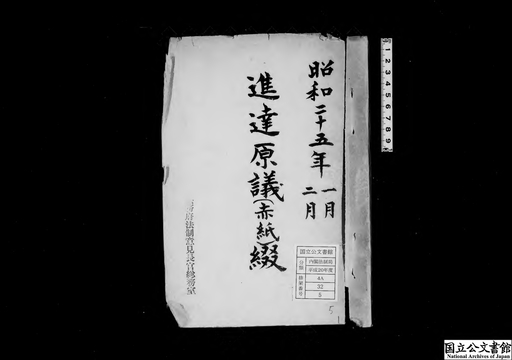 昭和二十五年
一月
二月
進達原議(赤紙)綴
府法制意見長官総務室
国立公文書館
分類
内閣法制局
平成20年度
排架番号
4A
32
5
5
1 2 3 4 5 6 7 8 9
国立公文書館
National Archives of Japan